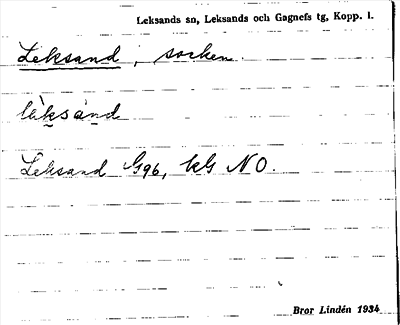 Leksands sn, Leksands och Gagnefs tg, Kopp. l.
Leksand, socken.
lä̀ksánd
Leksand G96, kG NO.
Bror Lindén 1934